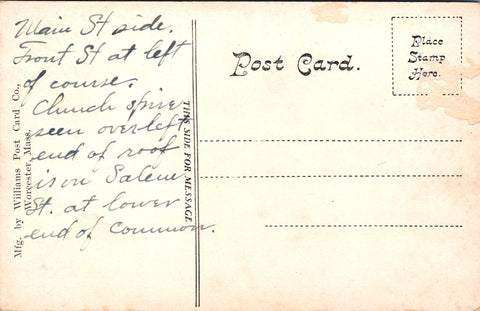 Main St side.
Front St at left
of course.
Church spire
seen over left
end of roof
is on Salem
St. at lower
end of common.
Mfg. by Williams Post Card Co.,
Worcester, Mass.
THIS SIDE FOR MESSAGE
Post Card.
Place
Stamp
Here.